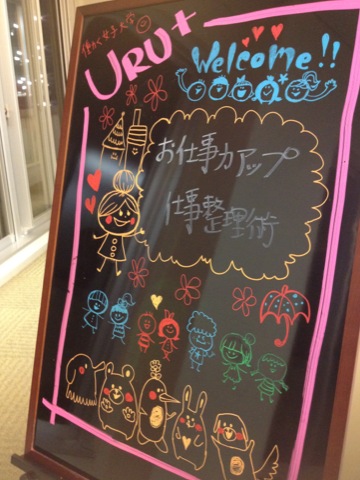 働く女子大学
URU+
Welcome!!
お仕事力アップ
仕事整理術